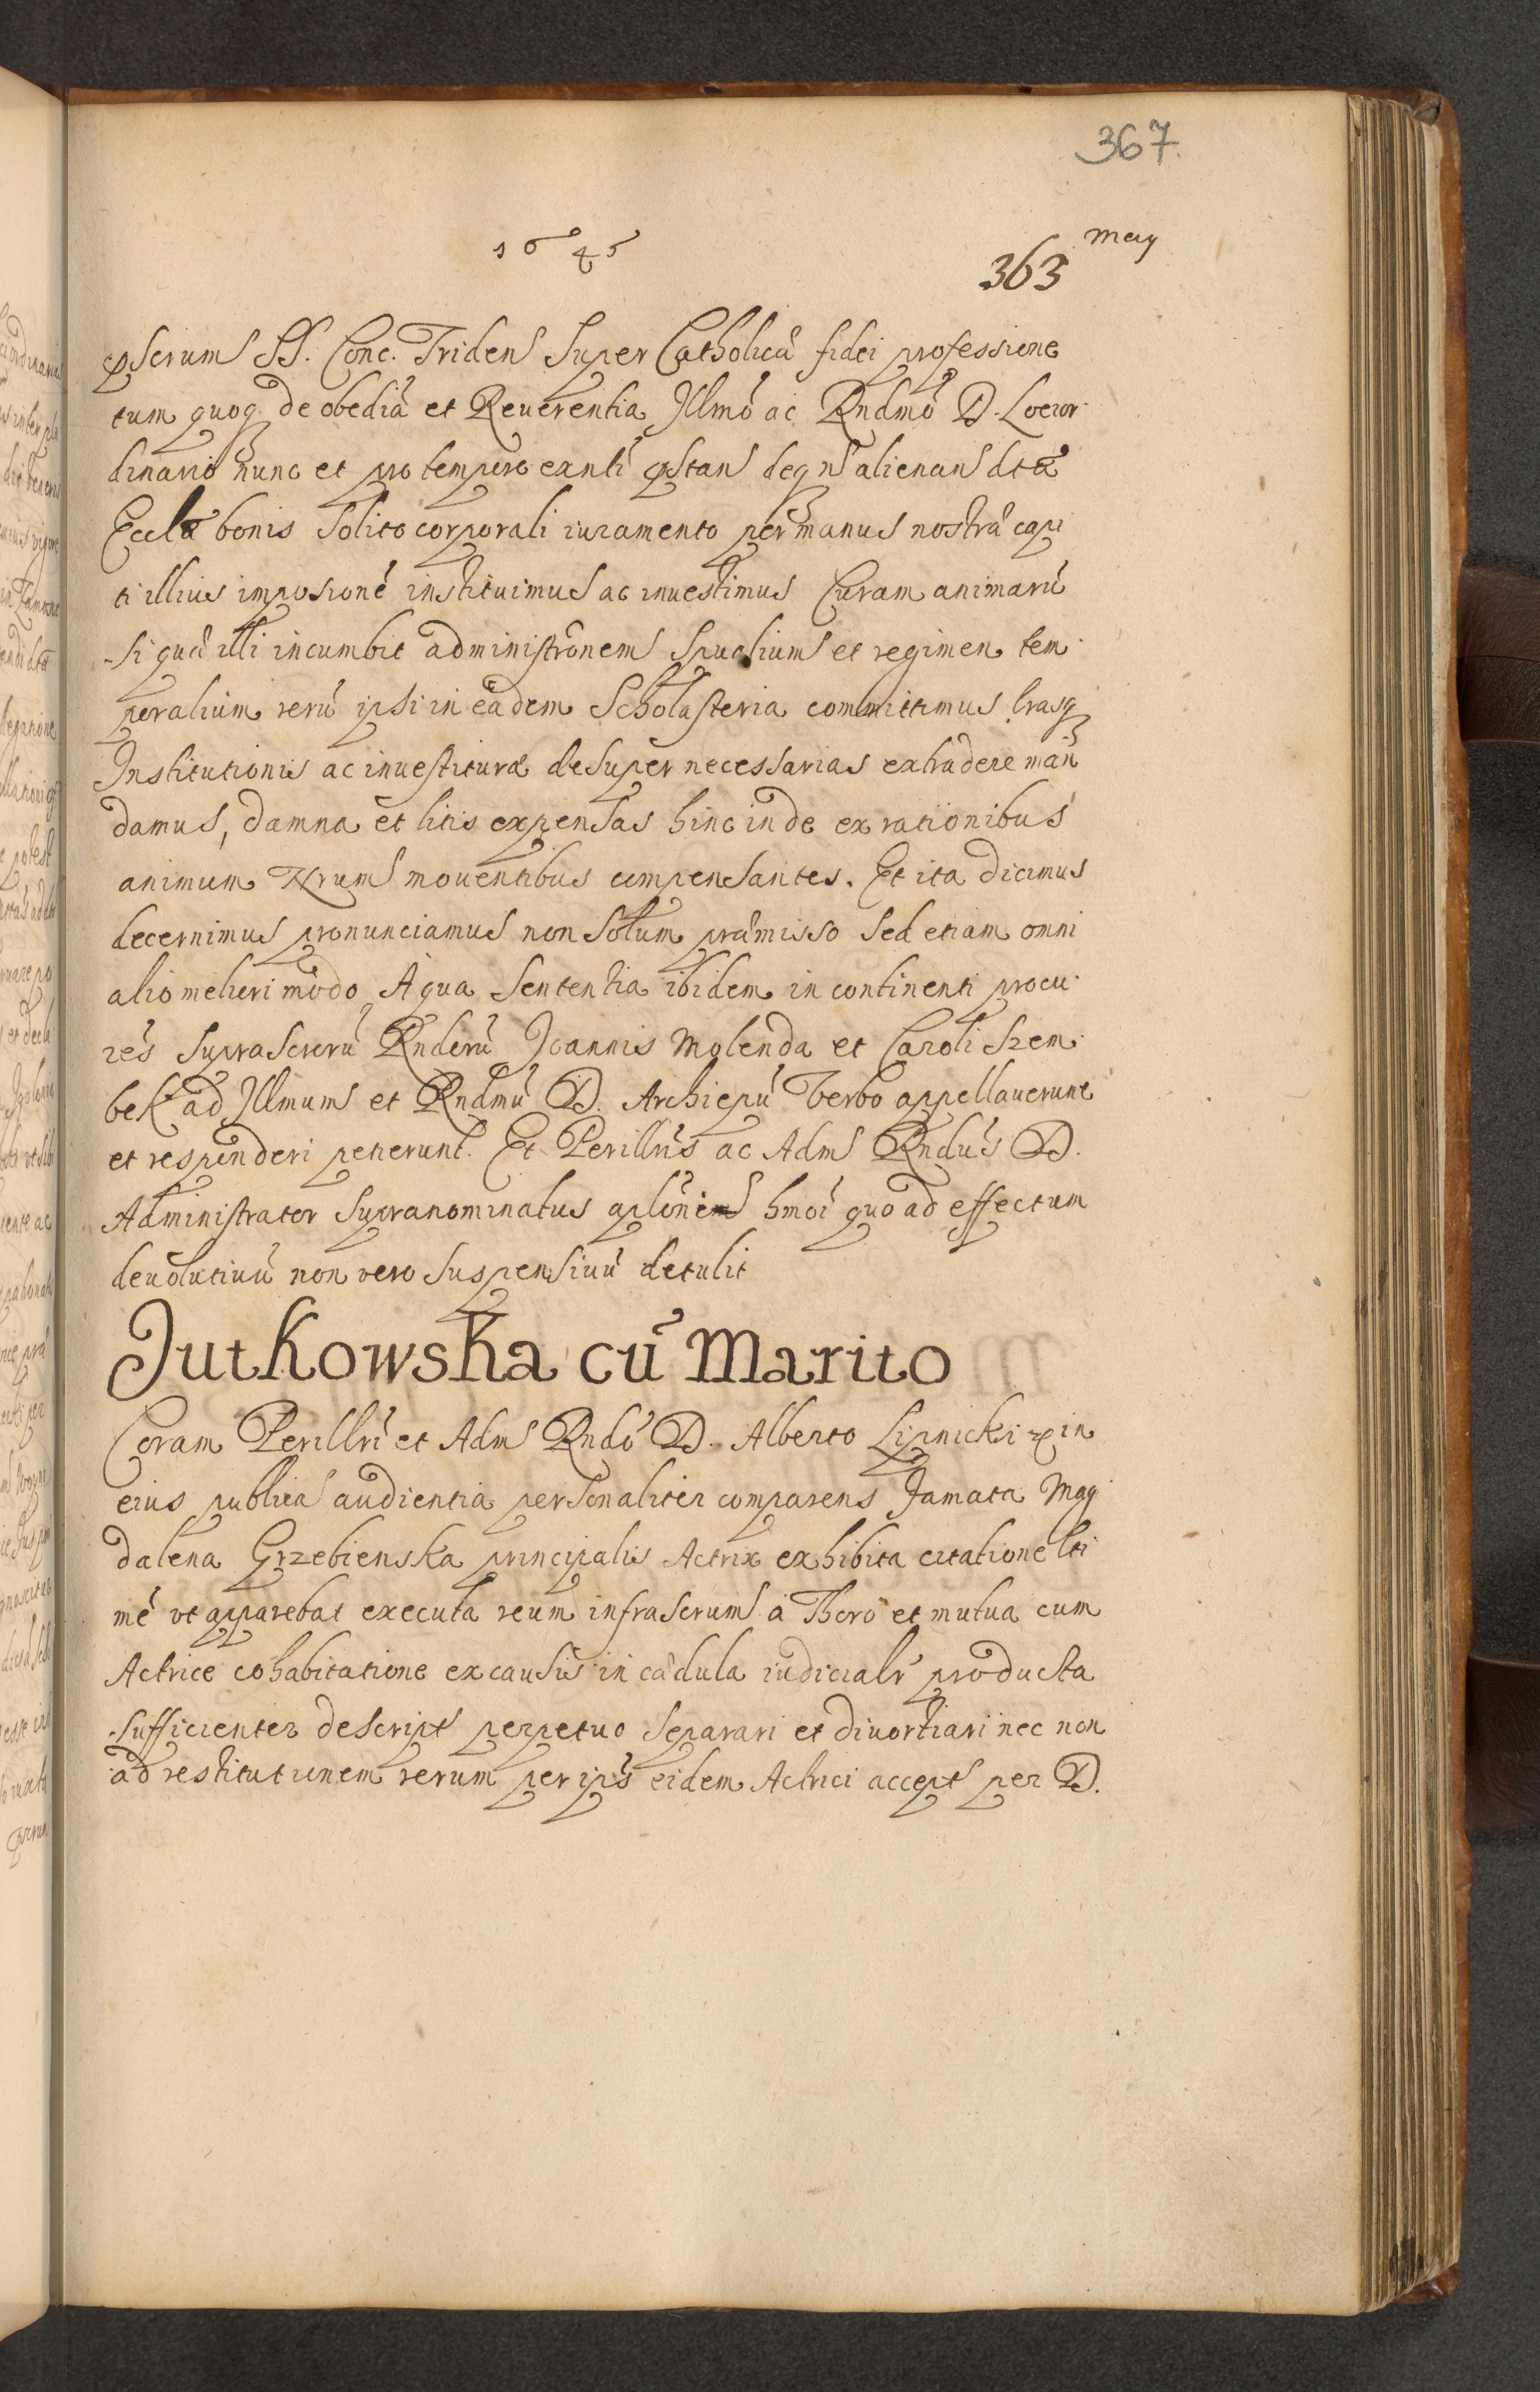 367.
1646 May
363
pscrum SS. Conc. Triden Super Catholicā fidei professione
tum quoq de obediā et Reuerentia Jllmō ac Rndmō D. Locior
dinariō nunc et pro tempore exnti stan deq n̄ alienan dtæ
Eccłæ bonis solito corporali iuramento per manus nostrā capi
ti illius imposionē instituimus ac inuestimus Curam animarū
si quā illi incumbit administrōnem Spualium et regimen tem
poralium rerū ipsi in eādem Scholasteria committimus lrasq
Institutionis ac inuestituræ desuper necessarias extradere man
damus, damna et litis expensas hinc inde ex rationibus
animum Nrum mouentibus compensantes. Et ita dicimus
decernimus pronunciamus non solum præmisso sed etiam omni
alio meliori modo A qua Sententia ibidem in continenti procu
rēs suprascrerū Rnderū Joannis Molenda et Caroli Szem
bek ad Jllmum et Rndmū D. Archiepū Verbo appellauerunt
et responderi petierunt. Et Perillrīs ac Adm Rndūs D.
Administrator Supranominatus aplōnem hmōi quo ad effectum
deuolutiuū non vero suspensiuū detulit
Jutkowska cū Marito
Coram Perillrī et Adm Rndō D. Alberto Lipnicki in
eius publica audientia personaliter comparens Famata Mag
dalena Grzebienska principalis Actrix exhibita citatione lti
mē vt apparebat executa reum infrascrum à Thoro et mutua cum
Actrice cohabitatione ex causis in cædula iudicialr̄ producta
sufficienter descript perpetuo separari et diuortiari nec non
ad restitutionem rerum per ipś eidem Actrici accept per D.